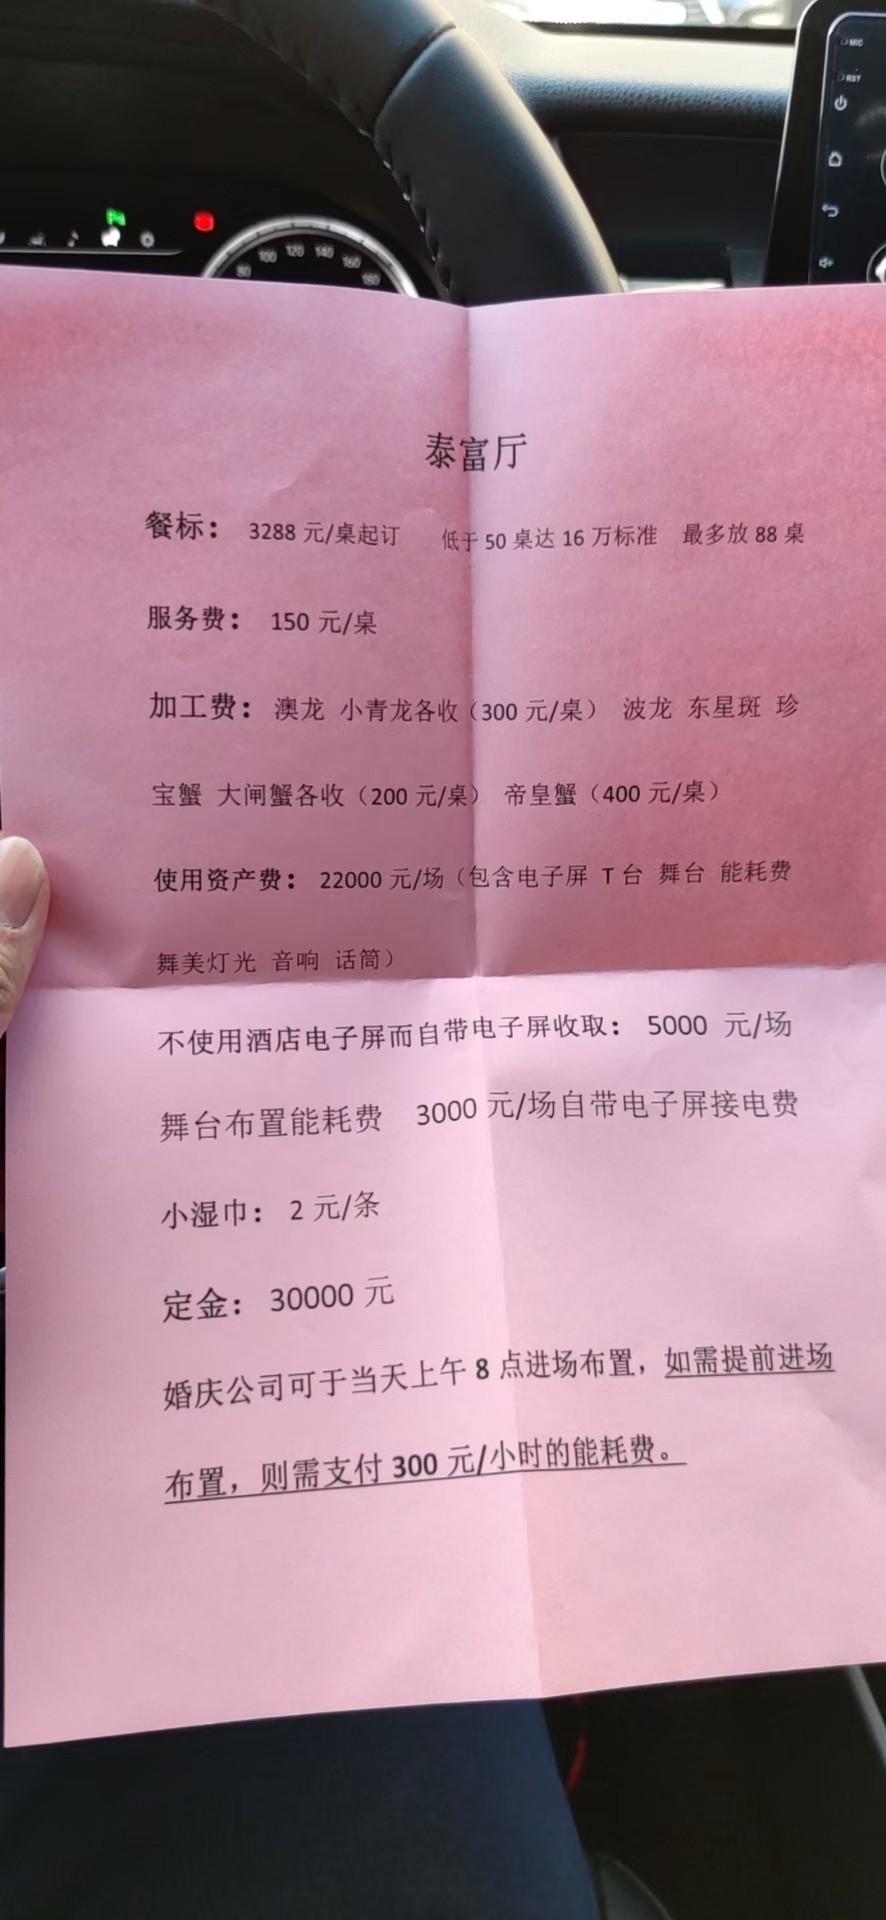 MIC
RST
80 100 120 140 160 180
泰富厅
餐标： 3288 元/桌起订 低于 50 桌达 16 万标准 最多放 88 桌
服务费： 150 元/桌
加工费： 澳龙 小青龙各收（300 元/桌） 波龙 东星斑 珍
宝蟹 大闸蟹各收（200 元/桌） 帝皇蟹（400 元/桌）
使用资产费： 22000 元/场（包含电子屏 T 台 舞台 能耗费
舞美灯光 音响 话筒）
不使用酒店电子屏而自带电子屏收取： 5000 元/场
舞台布置能耗费 3000 元/场自带电子屏接电费
小湿巾： 2 元/条
定金： 30000 元
婚庆公司可于当天上午 8 点进场布置，如需提前进场
布置，则需支付 300 元/小时的能耗费。